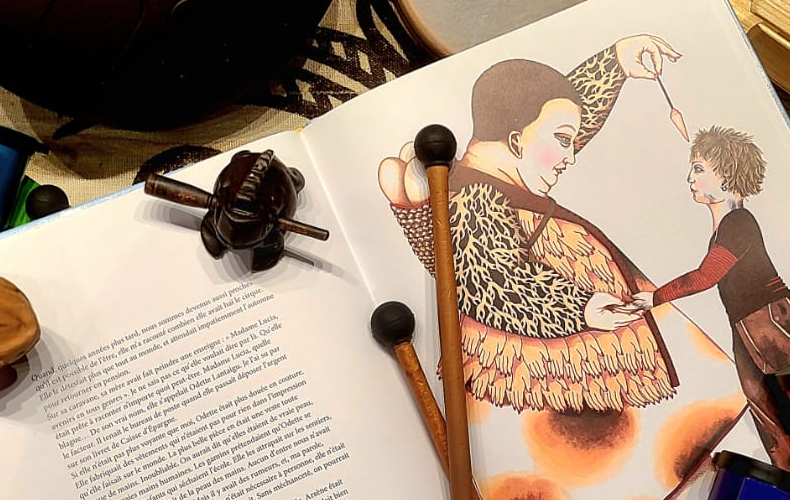 Quand, quelques années plus tard, nous sommes devenus aussi proches
qu'il est possible de l'être, elle m'a raconté combien elle avait haï le cirque.
Elle le détestait plus que tout au monde, et attendait impatiemment l'automne
pour retourner en pension.
Sur sa caravane, sa mère avait fait peindre une enseigne : « Madame Lucia,
avenirs en tous genres ». Je ne sais pas ce qu'elle voulait dire par là. Qu'elle
était prête à raconter n'importe quoi peut-être. Madame Lucia, quelle
blague… De son vrai nom, elle s'appelait Odette Lantaigu. Je l'ai su par
le facteur. Il tenait le bureau de poste quand elle passait déposer l'argent
sur son livret de Caisse d'Épargne.
Si elle n'était pas plus voyante que moi, Odette était plus douée en couture.
Elle fabriquait des vêtements qui n'étaient pas pour rien dans l'impression
qu'elle faisait sur le monde. La plus belle pièce en était une veste toute
de mains. Inoubliable. On aurait dit qu'elles étaient de vraie peau,
vraies mains humaines. Les gamins prétendaient qu'Odette se
fants qui séchaient l'école. Elle les attrapait sur les sentiers,
it de la peau des mains. Aucun d'entre nous n'avait
ais il y avait des rumeurs, et, ma parole,
nécessaire à personne, elle n'était
Sans méchanceté, on pourrait
Arsène était
bien